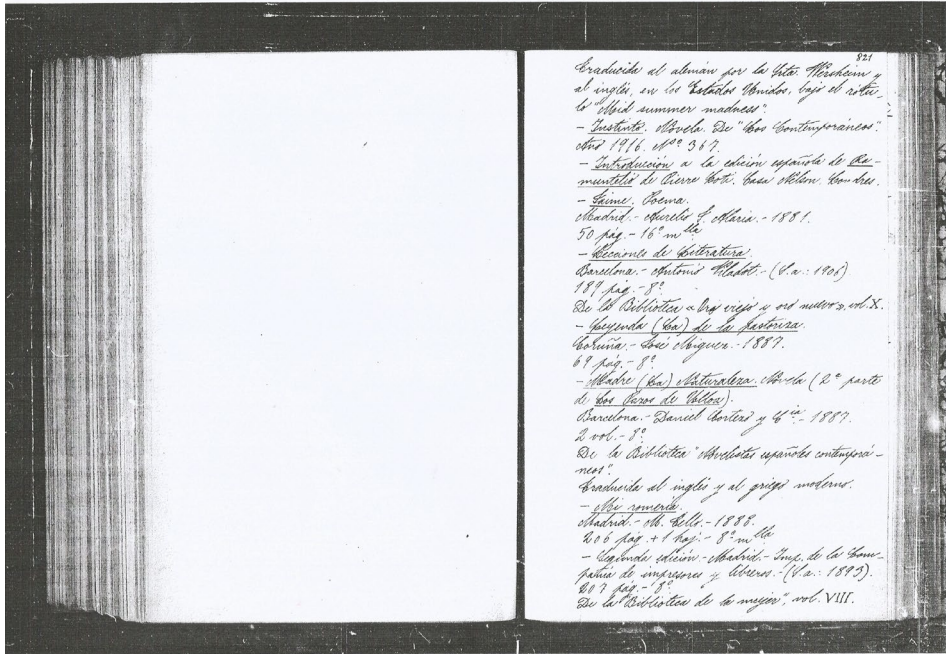 821
Traducida al alemán por la Srta. Wersheim y
al inglés, en los Estados Unidos, bajo el rótu-
lo "Mid summer madness"
- Instinto. Novela. De "Los Contemporáneos".
Año 1916. Nº 367.
- Introducción a la edición española de Ra-
muntcho de Pierre Loti. Casa Nelson. Londres.
- Jaime. Poema.
Madrid.- Aurelio J. Alaria.- 1881.
50 pág.- 16º mlla
- Lecciones de Literatura.
Barcelona.- Antonio Vladot.- (S.a.: 1906)
189 pág.- 8º
De la Biblioteca « Oro viejo y oro nuevo », vol. X.
- Leyenda (La) de la pastoriza.
Coruña.- José Miguez.- 1887.
69 pág.- 8º
- Madre (La) Naturaleza. Novela (2ª parte
de Los Pazos de Ulloa).
Barcelona.- Daniel Cortezo y Cía.- 1887.
2 vol.- 8º
De la Biblioteca "Novelistas españoles contemporá-
neos".
Traducida al inglés y al griego moderno.
- Mi romería.
Madrid.- M. Tello.- 1888.
206 pág. + 1 hoj.- 8º mlla
- Segunda edición.- Madrid.- Imp. de la Com-
pañía de impresores y libreros.- (S.a.: 1893).
207 pág.- 8º
De la "Biblioteca de la mujer", vol. VIII.